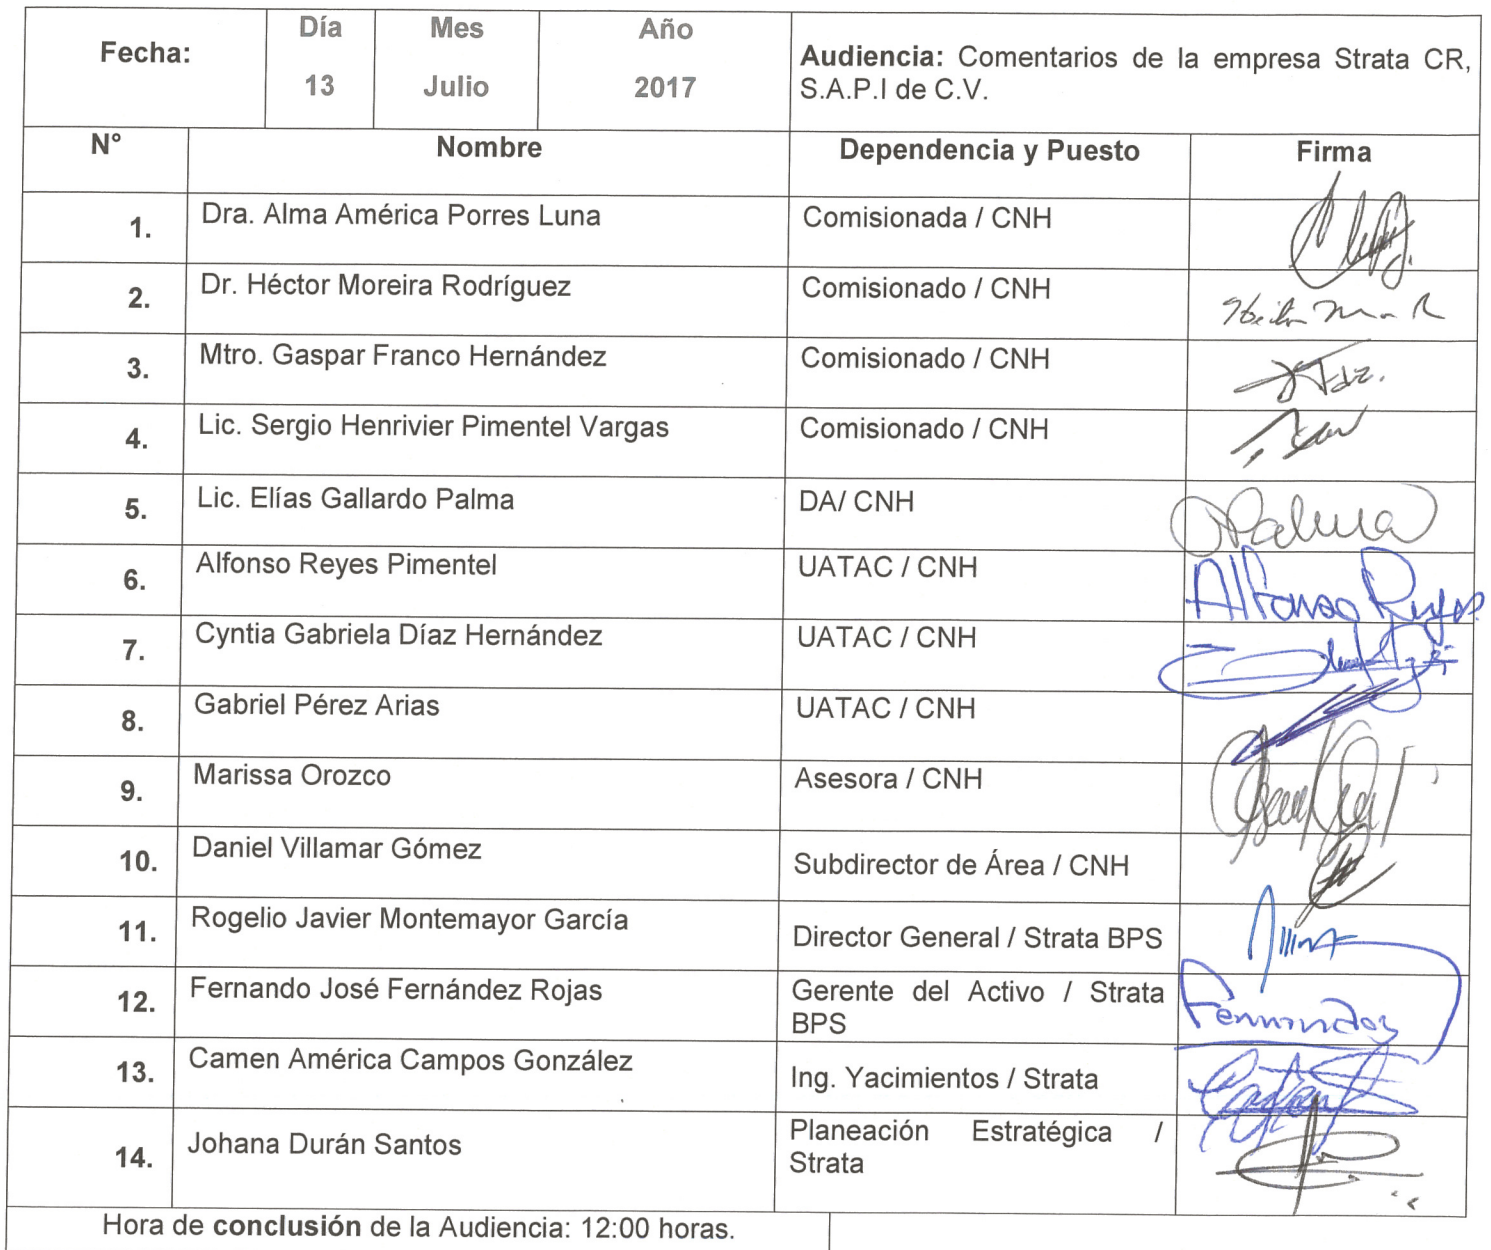 Fecha:
Día Mes Año
13 Julio 2017
Audiencia: Comentarios de la empresa Strata CR,
S.A.P.I de C.V.
N° Nombre Dependencia y Puesto Firma
1. Dra. Alma América Porres Luna Comisionada / CNH
2. Dr. Héctor Moreira Rodríguez Comisionado / CNH
3. Mtro. Gaspar Franco Hernández Comisionado / CNH
4. Lic. Sergio Henrivier Pimentel Vargas Comisionado / CNH
5. Lic. Elías Gallardo Palma DA/ CNH Palma
6. Alfonso Reyes Pimentel UATAC / CNH Alfonso Reyes
7. Cyntia Gabriela Díaz Hernández UATAC / CNH
8. Gabriel Pérez Arias UATAC / CNH
9. Marissa Orozco Asesora / CNH
10. Daniel Villamar Gómez Subdirector de Área / CNH
11. Rogelio Javier Montemayor García Director General / Strata BPS
12. Fernando José Fernández Rojas Gerente del Activo / Strata
BPS
13. Camen América Campos González Ing. Yacimientos / Strata
14. Johana Durán Santos Planeación Estratégica /
Strata
Hora de conclusión de la Audiencia: 12:00 horas.